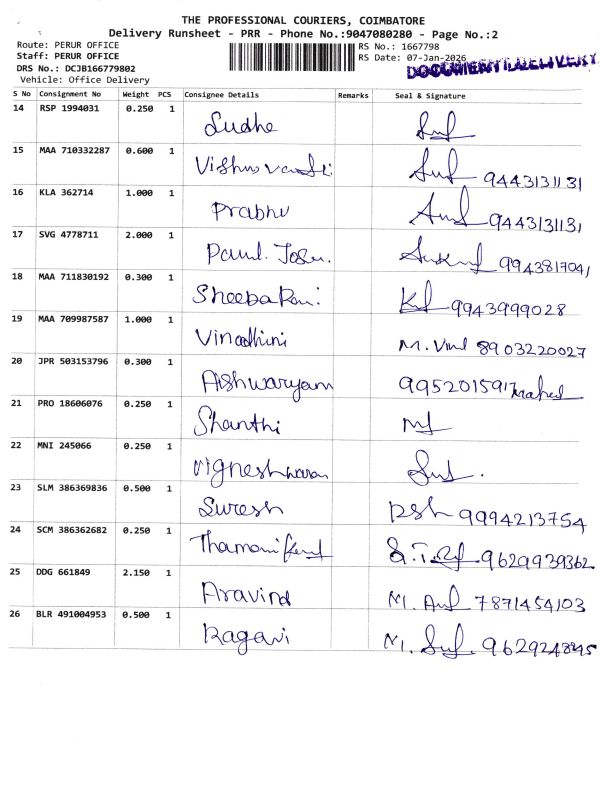 THE PROFESSIONAL COURIERS, COIMBATORE
Delivery Runsheet - PRR - Phone No.:9047080280 - Page No.:2
Route: PERUR OFFICE
Staff: PERUR OFFICE
DRS No.: DCJB166779802
Vehicle: Office Delivery
RS No.: 1667798
RS Date: 07-Jan-2026
DOCUMENT DELIVERY
S No Consignment No Weight PCS Consignee Details Remarks Seal & Signature
14 RSP 1994031 0.250 1 Sudha
15 MAA 710332287 0.600 1 9443131131
16 KLA 362714 1.000 1 Prabhu 9443131131
17 SVG 4778711 2.000 1 Paul. 9943817041
18 MAA 711830192 0.300 1 Sheeba Rani 9943999028
19 MAA 709987587 1.000 1 Vinodhini M. 8903220027
20 JPR 503153796 0.300 1 Aishwaryam 9952015917
21 PRO 18606076 0.250 1 Shanthi
22 MNI 245066 0.250 1 Vigneshwaran
23 SLM 386369836 0.500 1 Suresh 9994213754
24 SCM 386362682 0.250 1 9629939362
25 DDG 661849 2.150 1 Aravind M. 7871454103
26 BLR 491004953 0.500 1 Ragavi M.